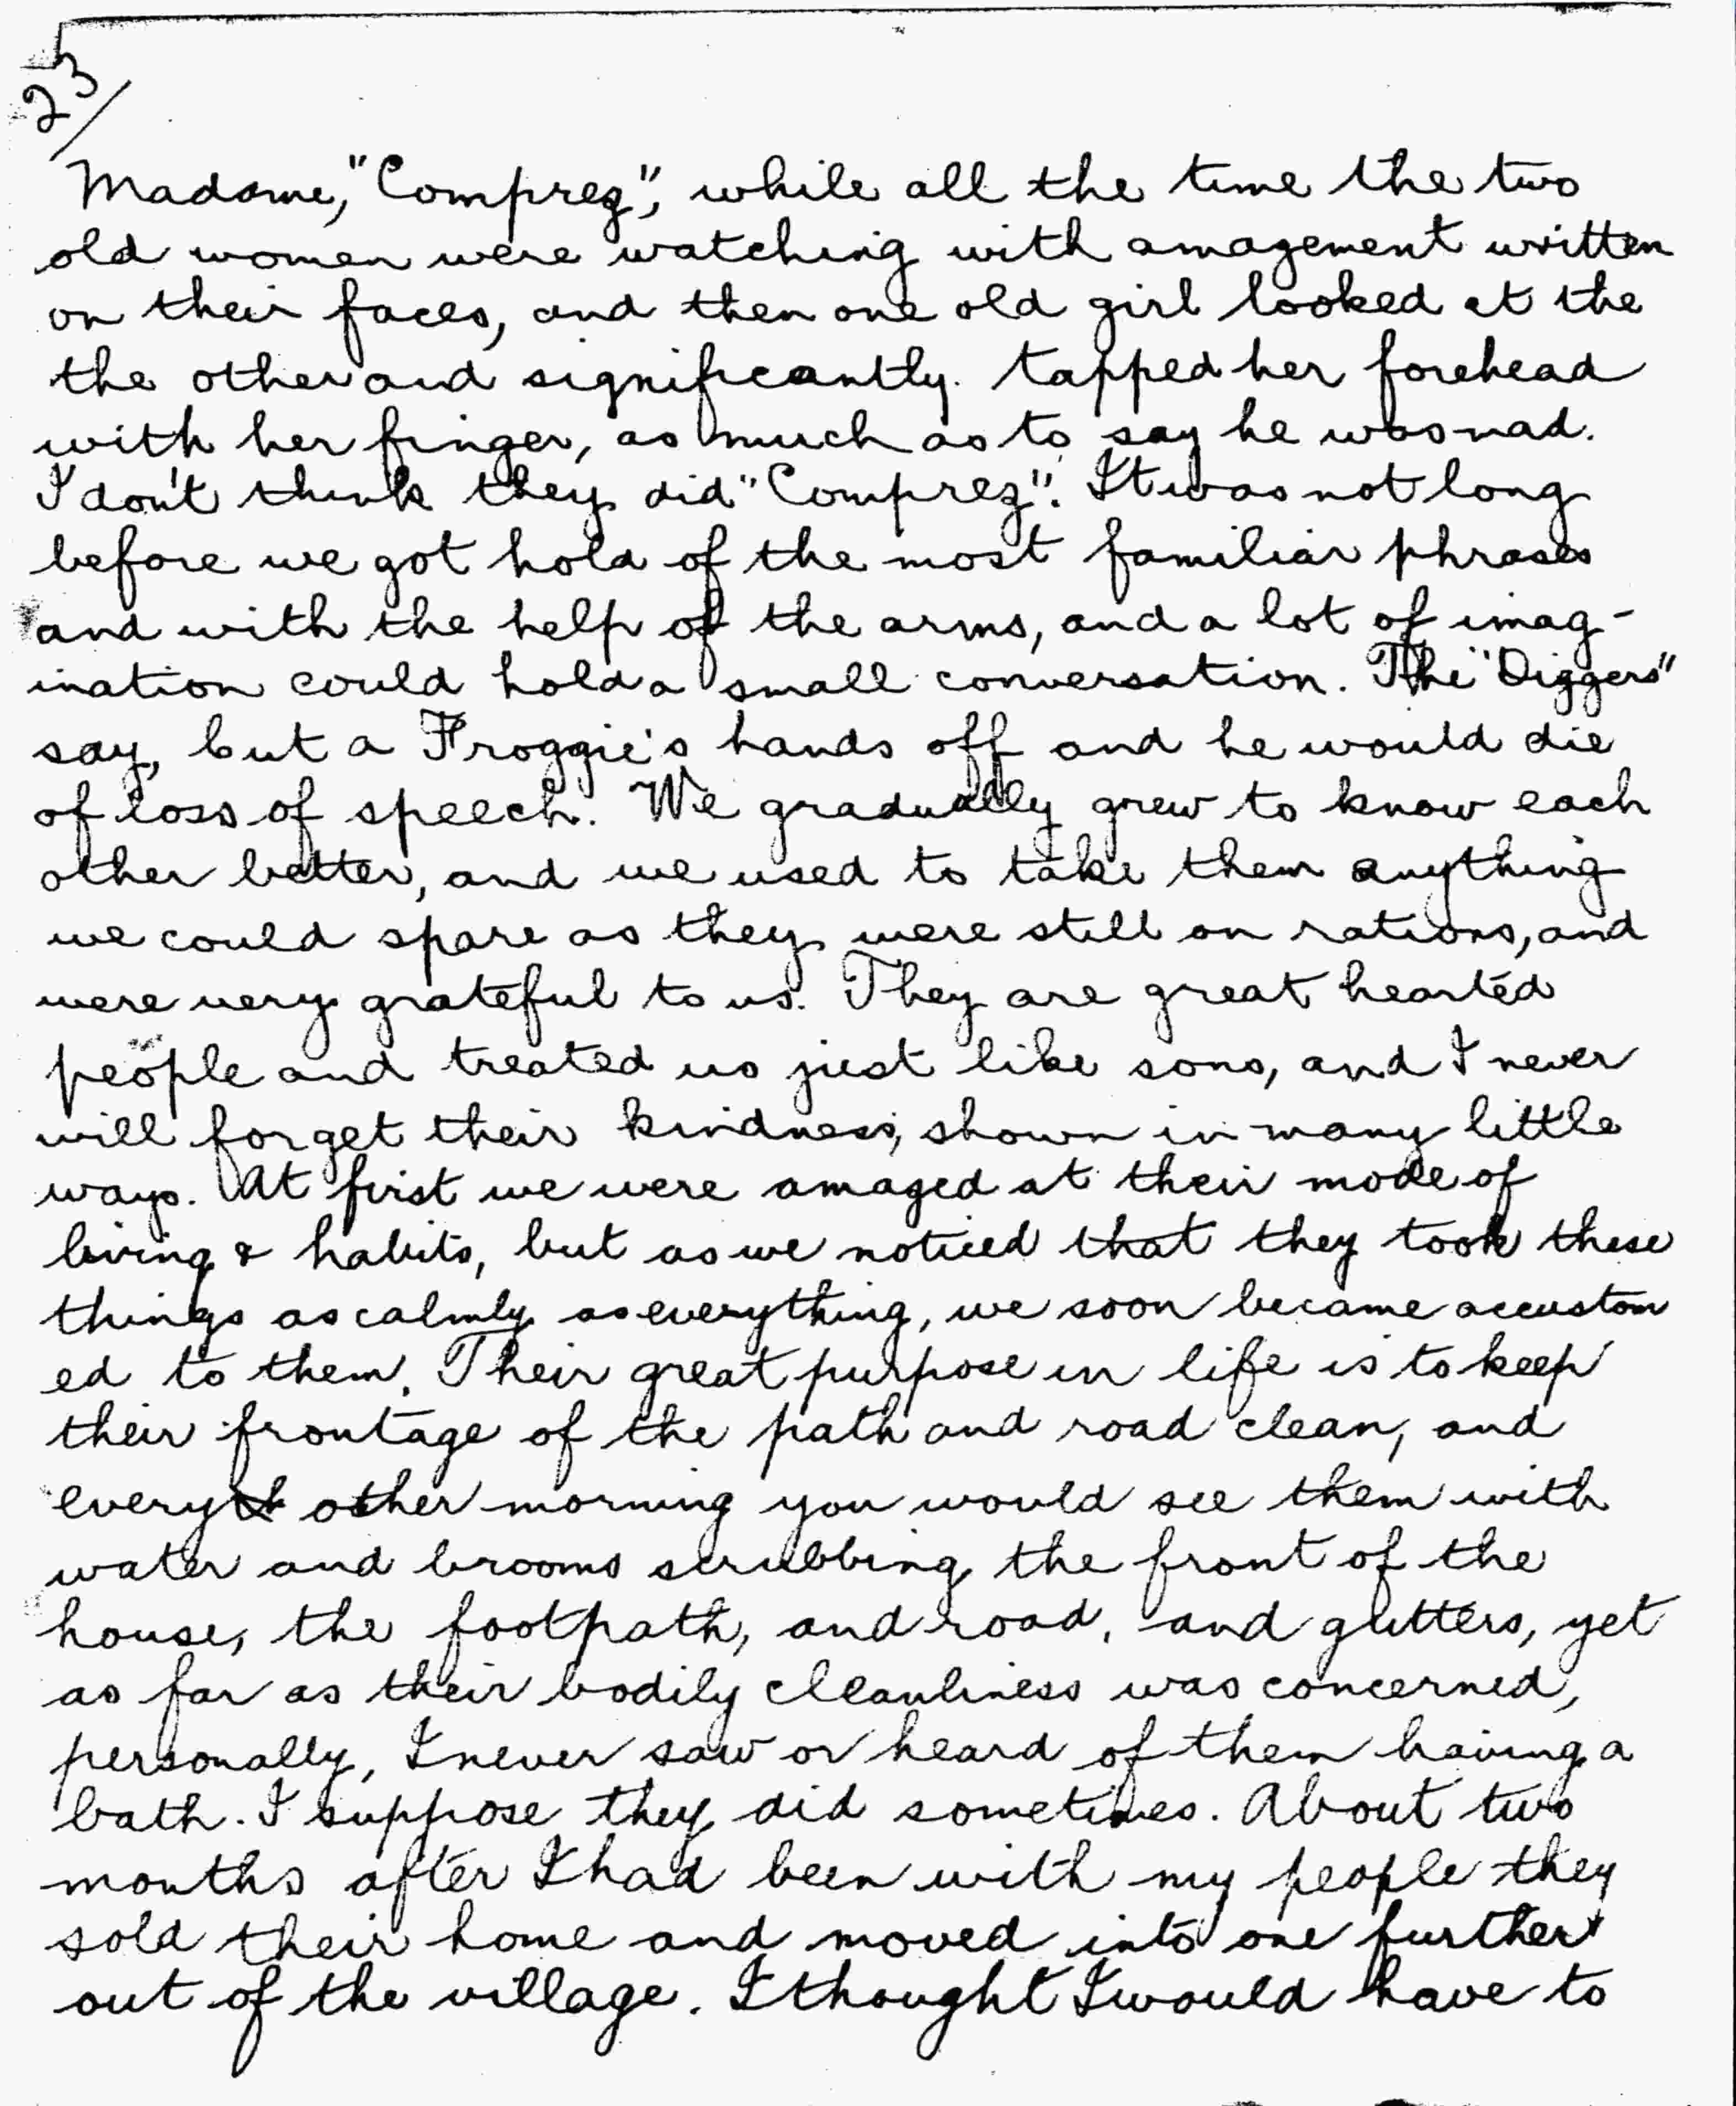 23/
Madame, "Comprez", while all the time the two
old women were watching with amazement written
on their faces, and then one old girl looked at the
the other and significantly. tapped her forehead
with her finger, as much as to say he was mad.
I don't think they did "Comprez". It was not long
before we got hold of the most familiar phrases
and with the help of the arms, and a lot of imag-
ination could hold a small conversation. The "Diggers"
say, but a Froggie's hands off and he would die
of loss of speech. We gradually grew to know each
other better, and we used to take them anything
we could spare as they were still on rations, and
were very grateful to us. They are great hearted
people and treated us just like sons, and I never
will forget their kindness, shown in many little
ways. At first we were amazed at their mode of
living & habits, but as we noticed that they took these
things as calmly as everything, we soon became accustom
ed to them. Their great purpose in life is to keep
their frontage of the path and road clean, and
every other morning you would see them with
water and brooms scrubbing the front of the
house, the footpath, and road, and gutters, yet
as far as their bodily cleanliness was concerned,
personally, I never saw or heard of them having a
bath. I suppose they did sometimes. About two
months after I had been with my people they
sold their home and moved into one further
out of the village. I thought I would have to